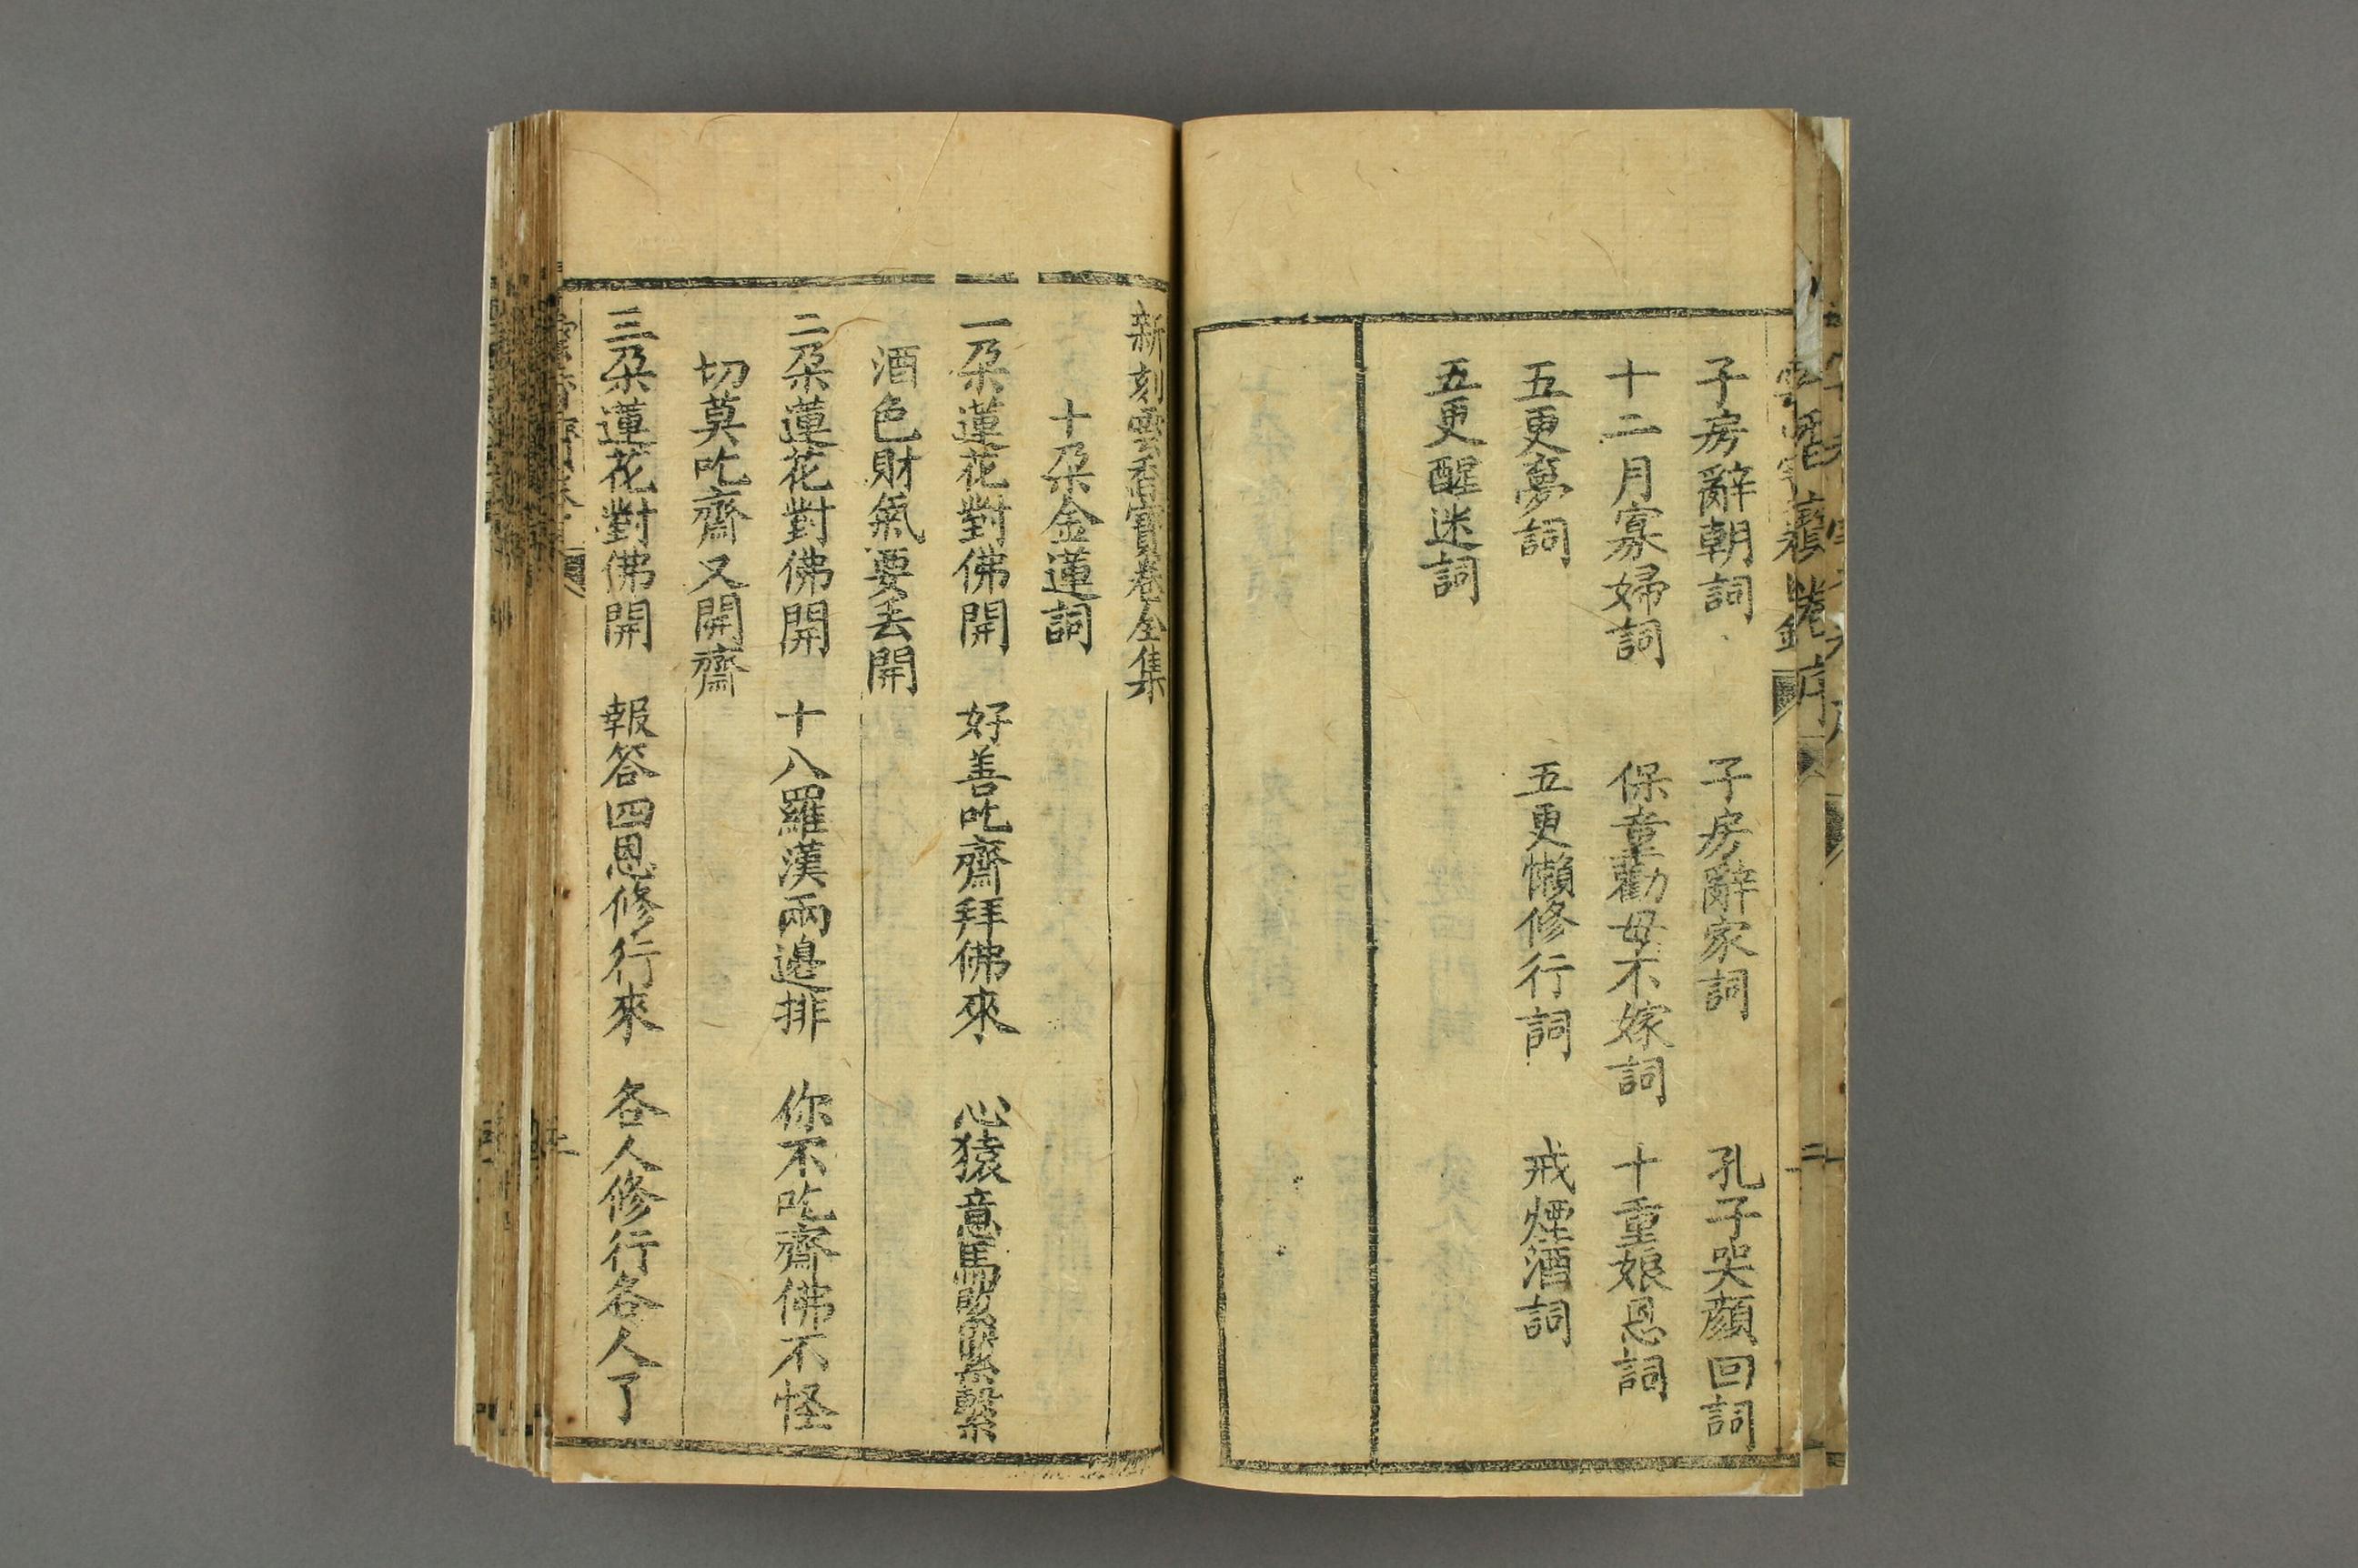 子房辭朝詞 子房辭家詞 孔子哭顏回詞
十二月寡婦詞 保童勸母不嫁詞 十重娘恩詞
五更夢詞 五更懶修行詞 戒煙酒詞
五更醒迷詞
新刻雲香寶卷全集
十朶金蓮詞
一朶蓮花對佛開 好善吃齋拜佛來 心猿意馬緊繫
酒色財氣要丢開
二朶蓮花對佛開 十八羅漢兩邊排 你不吃齋佛不怪
切莫吃齋又開齋
三朶蓮花對佛開 報答四恩修行來 各人修行各人了